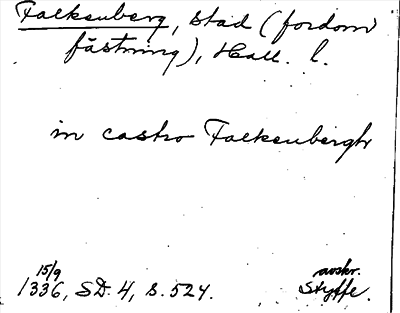 Falkenberg, stad (fordom
fästning), Hall. l.
in castro Falkenbergh
15/9 avskr.
1336, SD. 4, s. 524. Styffe.